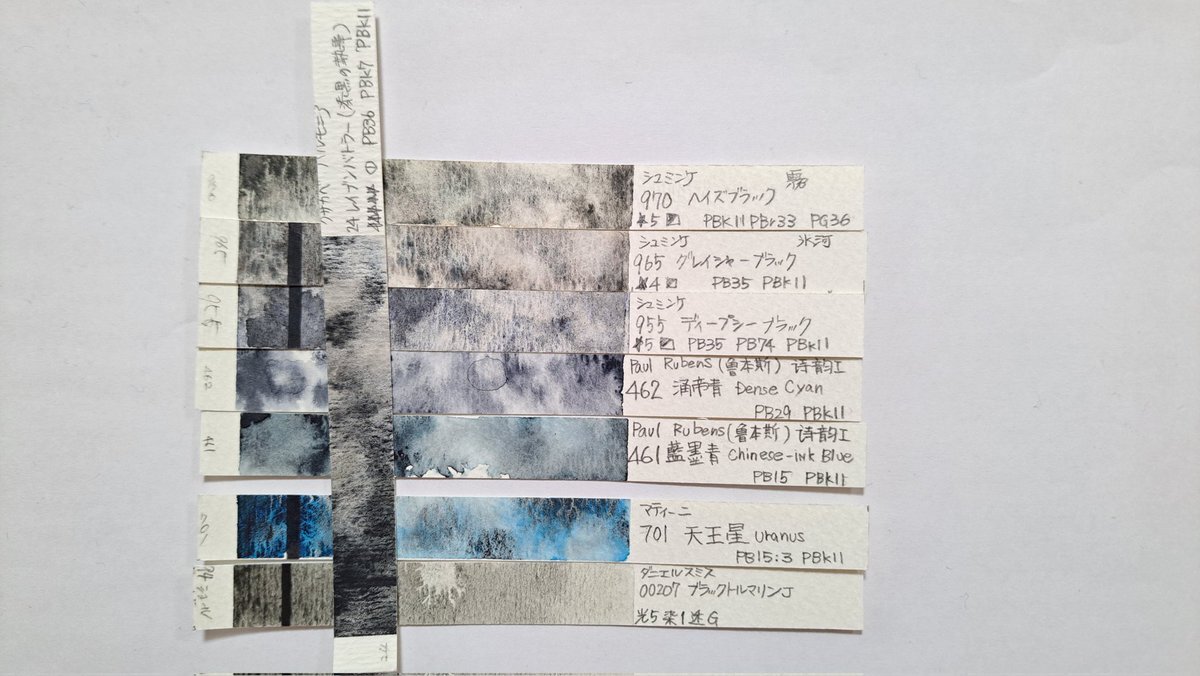 24 レイブンバトラー(漆黒の執事)
PB36 PBk7 PBk11
シュミンケ 霧
970 ヘイズブラック
★5 PBK11 PBr33 PG36
シュミンケ 氷河
965 グレイシャーブラック
★4 PB35 PBk11
シュミンケ
955 ディープシーブラック
★5 PB35 PB74 PBk11
462
Paul Rubens(魯本斯)诗韵I
462 涌青 Dense Cyan
PB29 PBK11
461
Paul Rubens(魯本斯)诗韵I
461 藍墨青 Chinese-ink Blue
PB15 PBK11
701
マティーニ
701 天王星 uranus
PB15:3 PBK11
ダニエルスミス
00207 ブラックトルマリンJ
光5染1透G